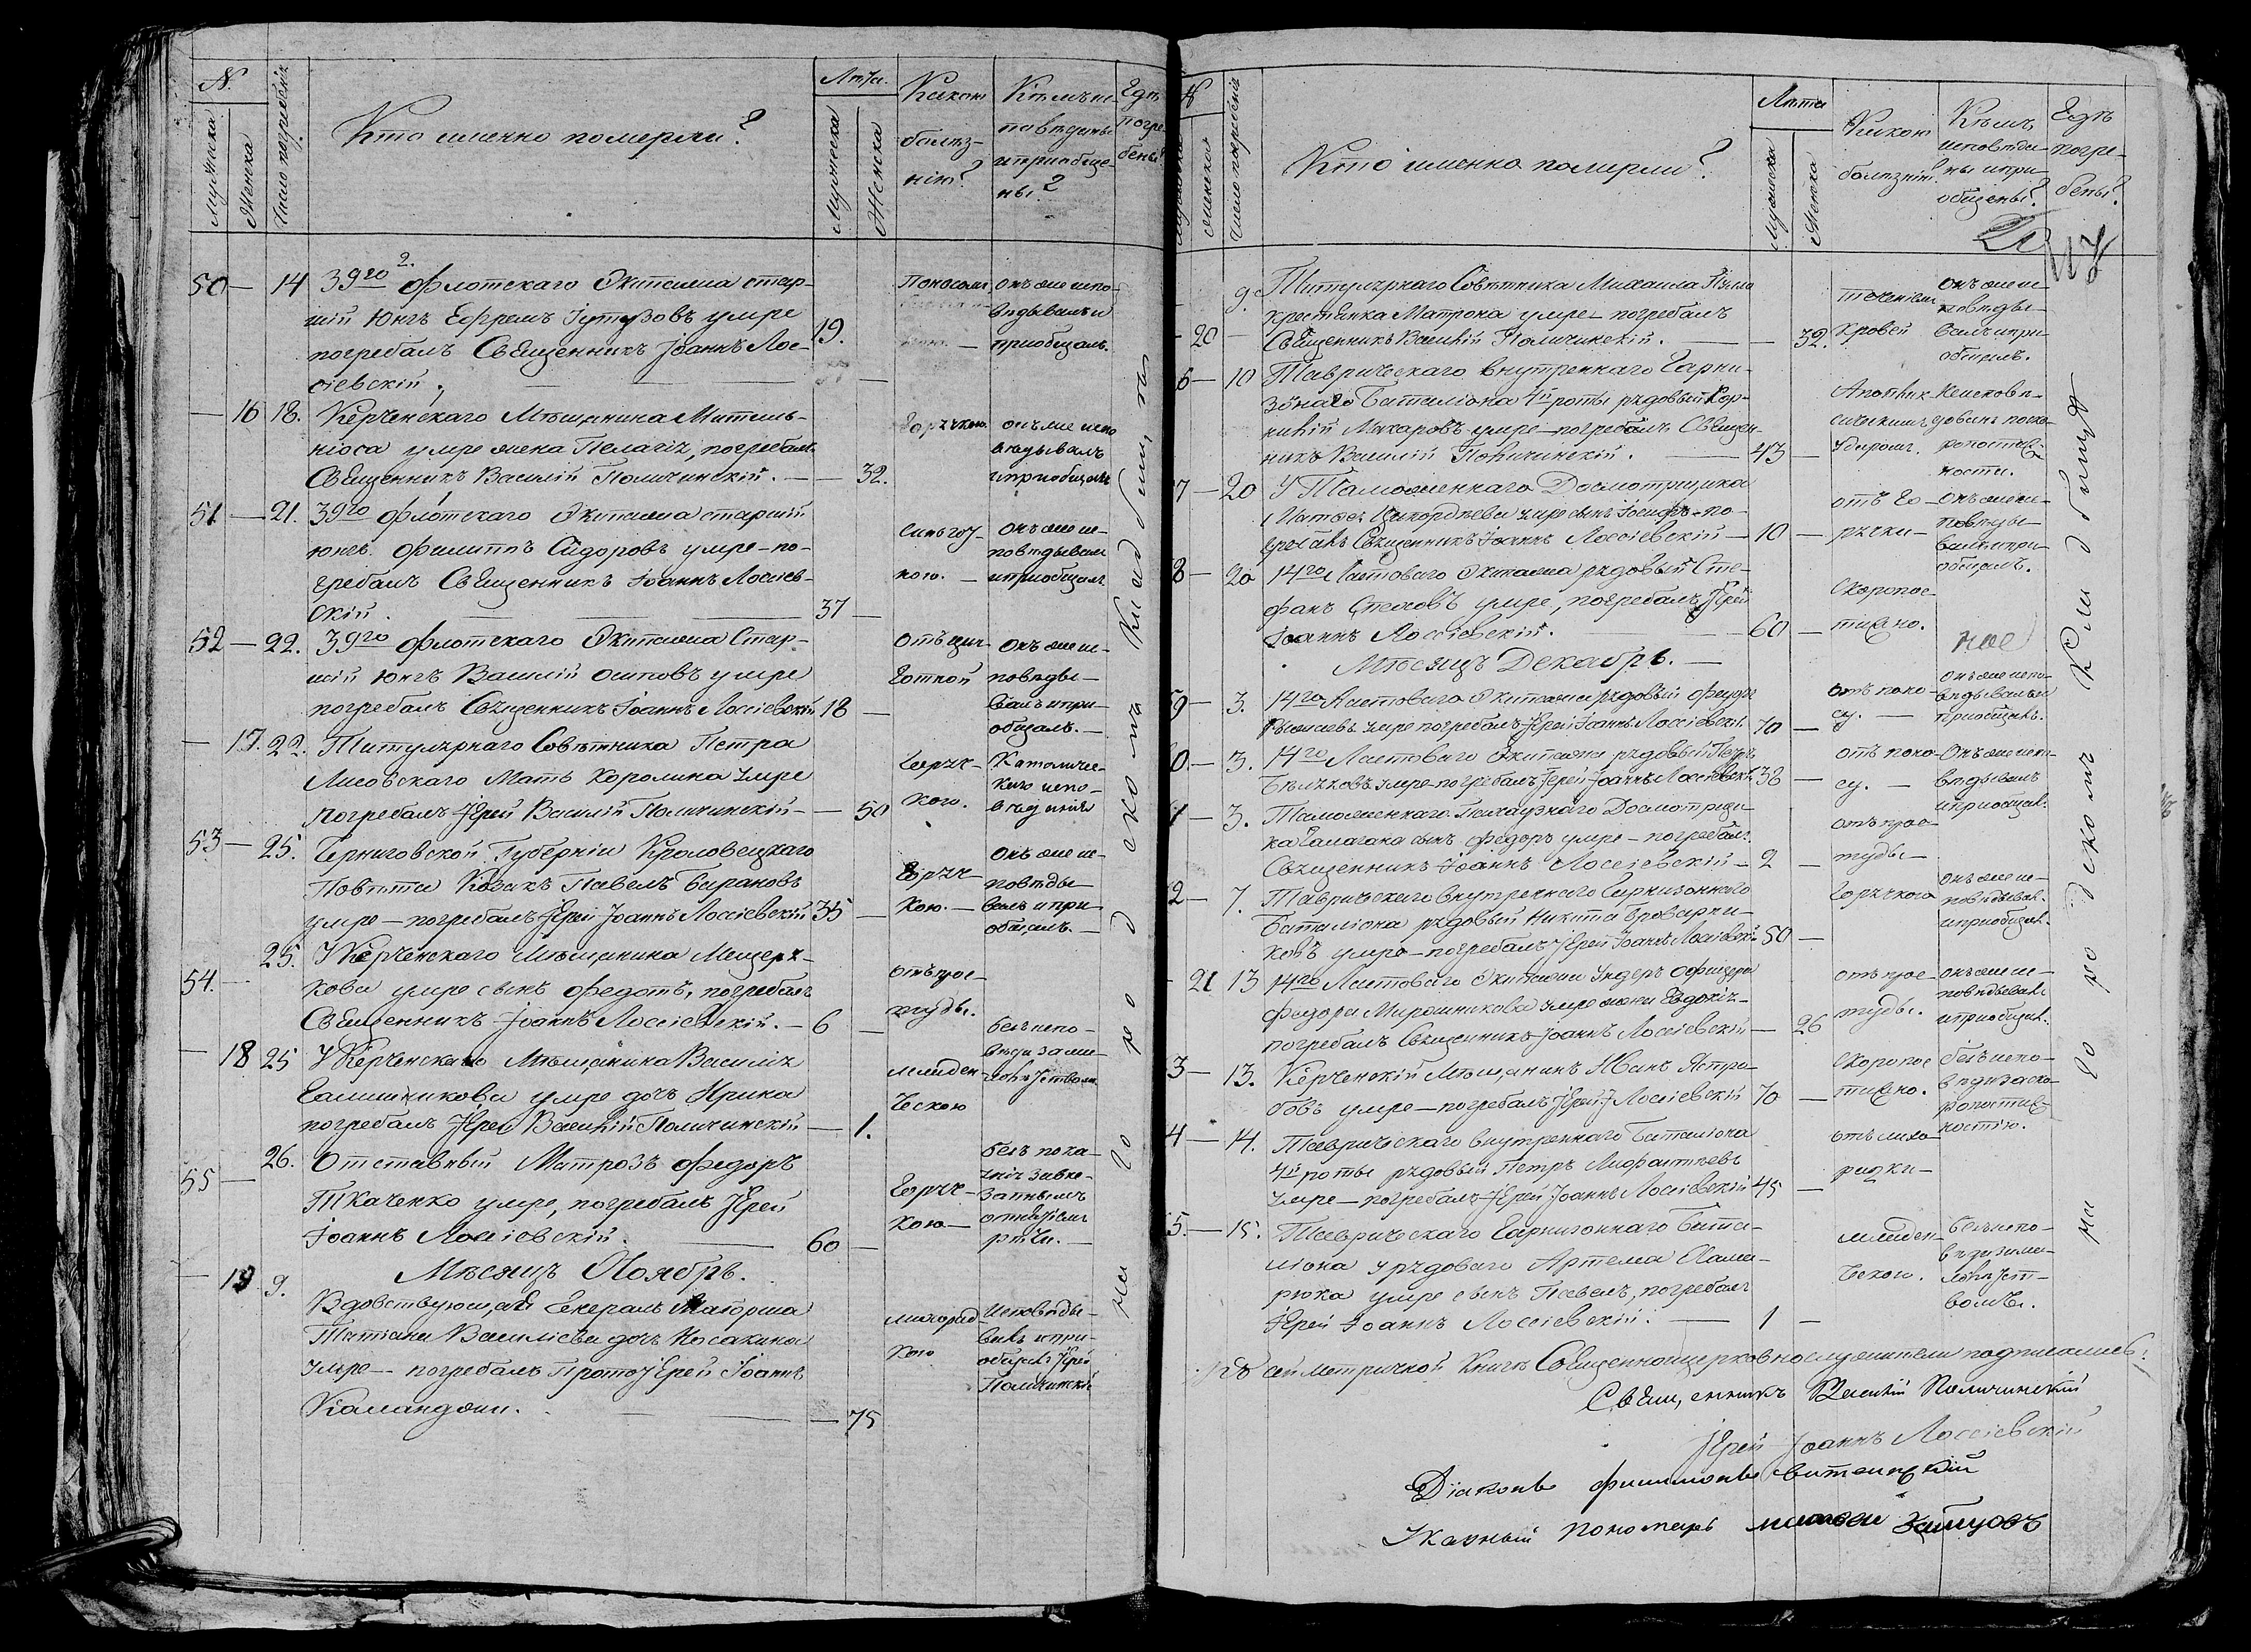 №.
Мужеска
Женска
Число погребенія
Кто имянно померли?
Лѣта.
Мужеска
Женска
Какою болѣзнію?
Кѣмъ исповѣданы и пріобщены?
Гдѣ погребены?
50 — 14 39го флотскаго Экипажа стар-
шій Юнгъ Ефремъ умре 19.
погребалъ Священникъ Іоаннъ Лос-
сіевскій.
Поносомъ
онъ же испо-
вѣдывалъ и
пріобщалъ.
— 16 18. Керченскаго Мѣщанина
умре жена Пелагія, погребалъ
Священникъ Василій Поличинскій. — 32.
Горячкою.
онъ же испо
вѣдывалъ
и пріобщалъ
51 — 21. 39го флотскаго Экипажа старшій
юнгъ Филиппъ Сидоровъ умре — по-
гребалъ Священникъ Іоаннъ Лоссіев-
скій. 37 —
онъ же ис-
повѣдывалъ
и пріобщалъ
52 — 22. 39го флотскаго Экипажа Стар-
шій Юнгъ Василій Осиповъ умре
погребалъ Священникъ Іоаннъ Лоссіевскій 18 —
Отъ цын-
готной
онъ же ис-
повѣды-
валъ и прі-
общалъ. —
— 17. 22. Титулярнаго Совѣтника Петра
Лисовскаго Мать Королина умре
погребалъ Іерей Василій Поличинскій — 50
Горяч-
кою.
Католичес-
каго испо-
вѣданія
53 — 25. Черниговской Губерніи Кроловецкаго
Повѣта Козакъ Павелъ Барановъ
умре — погребалъ Іерей Іоаннъ Лоссіевскій 35 —
Горяч-
кою. —
Онъ же ис-
повѣды-
валъ и прі-
общалъ. —
54. — 25. У Керченскаго Мѣщанина Мещеря-
кова умре сынъ Федотъ, погребалъ
Священникъ Іоаннъ Лоссіевскій. — 6 —
отъ прос-
туды.
— 18 25 У Керченскаго Мѣщанина Василія
умре дочь Ирина
погребалъ Іерей Василій Поличинскій — 1.
младен-
ческою
безъ испо-
вѣди за ма-
лолѣтствомъ
55 — 26. Отставный Матрозъ Федоръ
Ткаченко умре, погребалъ Іерей
Іоаннъ Лоссіевскій. 60 —
Горяч-
кою —
безъ пока-
янія
Мѣсяцъ Ноябрь.
— 19 9. Вдовствующая Генералъ Маіорша
Татіана Васильева дочь Косакина
умре — погребалъ Протоіерей Іоаннъ
— 75
лихорад-
кою
Исповѣды-
валъ и прі-
общалъ Іерей
Поличинскій
на городскомъ кладбищѣ
№
Мужеска
Женска
Число погребенія
Кто именно померли?
Лѣта
Мужеска
Женска
Какою болѣзнію?
Кѣмъ исповѣданы и пріобщены?
Гдѣ погребены?
— 20 — 9. Титулярнаго Совѣтника Михаила
крестьянка Матрона умре — погребалъ
Священникъ Василій Поличинскій. — 32.
теченіемъ
кровей
Онъ же ис-
повѣды-
валъ и прі-
общалъ.
6 — 10 Таврическаго внутренняго Гарни-
зоннаго Баталіона 4й роты рядовый Кор-
нилій Макаровъ умре — погребалъ Священ-
никъ Василій Поличинскій. — 43 —
Апоплек-
сическимъ
Ударомъ.
Неисповѣ-
дованъ по ско-
ропостиж-
ности.
7 — 20 У Таможеннаго Досмотрщика
умре сынъ Іосифъ — по-
гребалъ Священникъ Іоаннъ Лоссіевскій — 10 —
отъ Го-
рячки —
Онъ же ис-
повѣды-
валъ и прі-
общалъ.
8 — 20 14го Ластоваго Экипажа рядовый Сте-
фанъ умре, погребалъ Іерей
Іоаннъ Лоссіевскій. — 60 —
Скоропос-
тижно.
Мѣсяцъ Декабрь. —
59 — 3. 14го Ластоваго Экипажа рядовый Федоръ
умре погребалъ Іерей Іоаннъ Лоссіевскій. 70 —
отъ поно-
су. —
онъ же испо-
вѣдывалъ и
пріобщалъ.
0. — 3. 14го Ластоваго Экипажа рядовый Петръ
Бѣлчковъ умре — погребалъ Іерей Іоаннъ Лоссіевскій 38 —
отъ поно-
су. —
Онъ же испо-
вѣдывалъ
и пріобщал.
1 — 3. Таможеннаго Пакгаузнаго Досмотрщи-
ка Галагана сынъ Федоръ умре — погребалъ
Священникъ Іоаннъ Лоссіевскій — 2 —
отъ прос-
туды —
2 — 7. Таврическаго внутренняго Гарнизоннаго
Баталіона рядовый Никита Броварни-
ковъ умре — погребалъ Іерей Іоаннъ Лоссіевскій 50 —
Горячкою
онъ же ис-
повѣдывал.
и пріобщал.
— 21 13 14го Ластоваго Экипажа Ундеръ Офицера
Федора Мирошникова умре жена Евдокія —
погребалъ Священникъ Іоаннъ Лоссіевскій — 26
отъ прос-
туды.
онъ же ис-
повѣдывалъ
и пріобщал.
3 — 13. Керченскій Мѣщанинъ Иванъ Ястре-
бовъ умре — погребалъ Іерей І Лоссіевскій 70 —
Скоропос
тижно.
безъ испо-
вѣди за ско-
ропостиж-
ностію.
4 — 14. Таврическаго внутренняго Баталіона
4й роты рядовый Петръ
умре — погребалъ Іерей Іоаннъ Лоссіевскій 45 —
отъ лихо-
радки —
5. — 15. Таврическаго Гарнизоннаго Бата-
ліона у рядоваго Артема
умре сынъ Павелъ, погребалъ
Іерей Іоаннъ Лоссіевскій. — 1 —
младен-
ческою.
безъ испо-
вѣди за ма-
лолѣтст-
вомъ.
на городскомъ кладбищѣ
Къ сей метричкой Книгѣ Священноцерковнослужители подписались:
Священникъ Василій Поличинскій
Іерей Іоаннъ Лоссіевскій
Діаконъ Филимонъ
Указный Пономарь